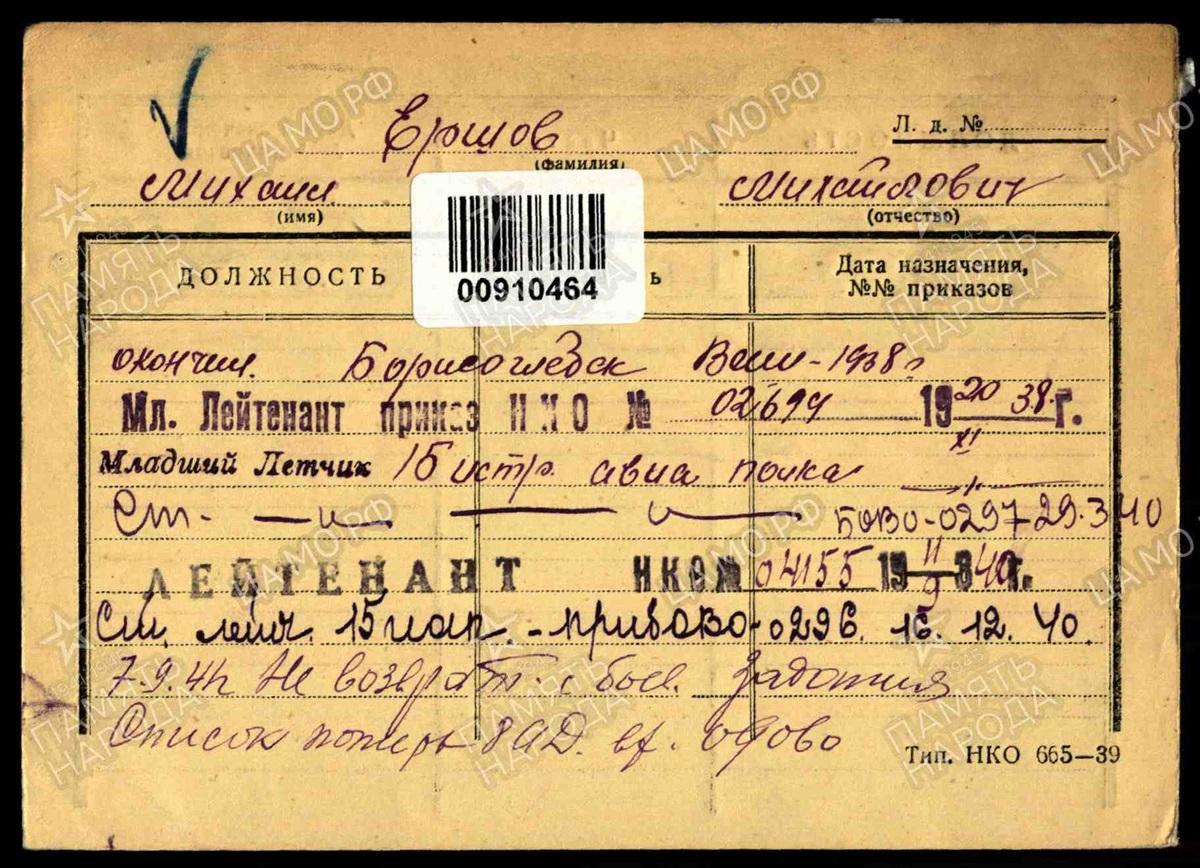 Л. д. №
Ершов
(фамилия)
Михаил Михайлович
(имя) (отчество)
00910464
ДОЛЖНОСТЬ ь Дата назначения, №№ приказов
окончил Борисоглебск Вош - 1938 г
Мл. Лейтенант приказ НКО № 02694 1920/XI 38 г.
Младший Летчик 15 истр. авиа полка
Ст. — и — — и — БОВО-0297 29.3.40
ЛЕЙТЕНАНТ НКО № 04155 19 11/9 40 г.
Ст. лейт. 15 иап. - прибово-0296. 16. 12. 40.
7.9.41г Не возврат. с боев. задания
Список потерь 8 АД. вх. одово
Тип. НКО 665—39
ЦАМО РФ
ПАМЯТЬ НАРОДА